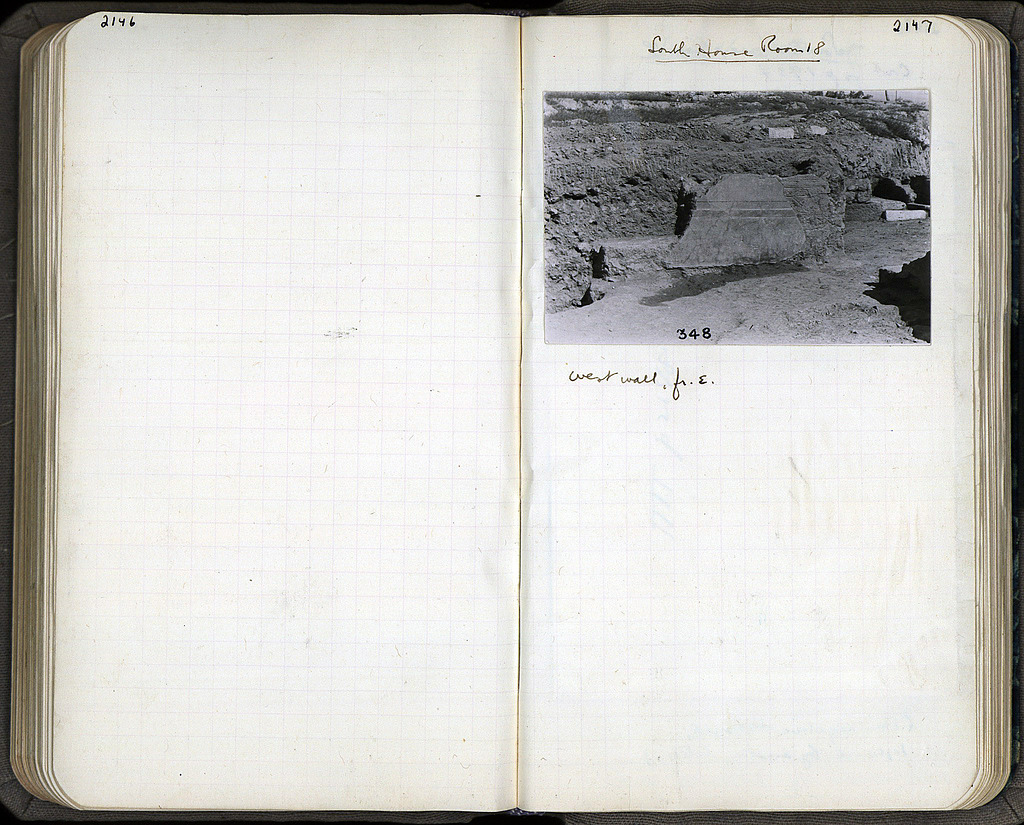 2146
2147
South House Room 18
348
west wall, fr. E.